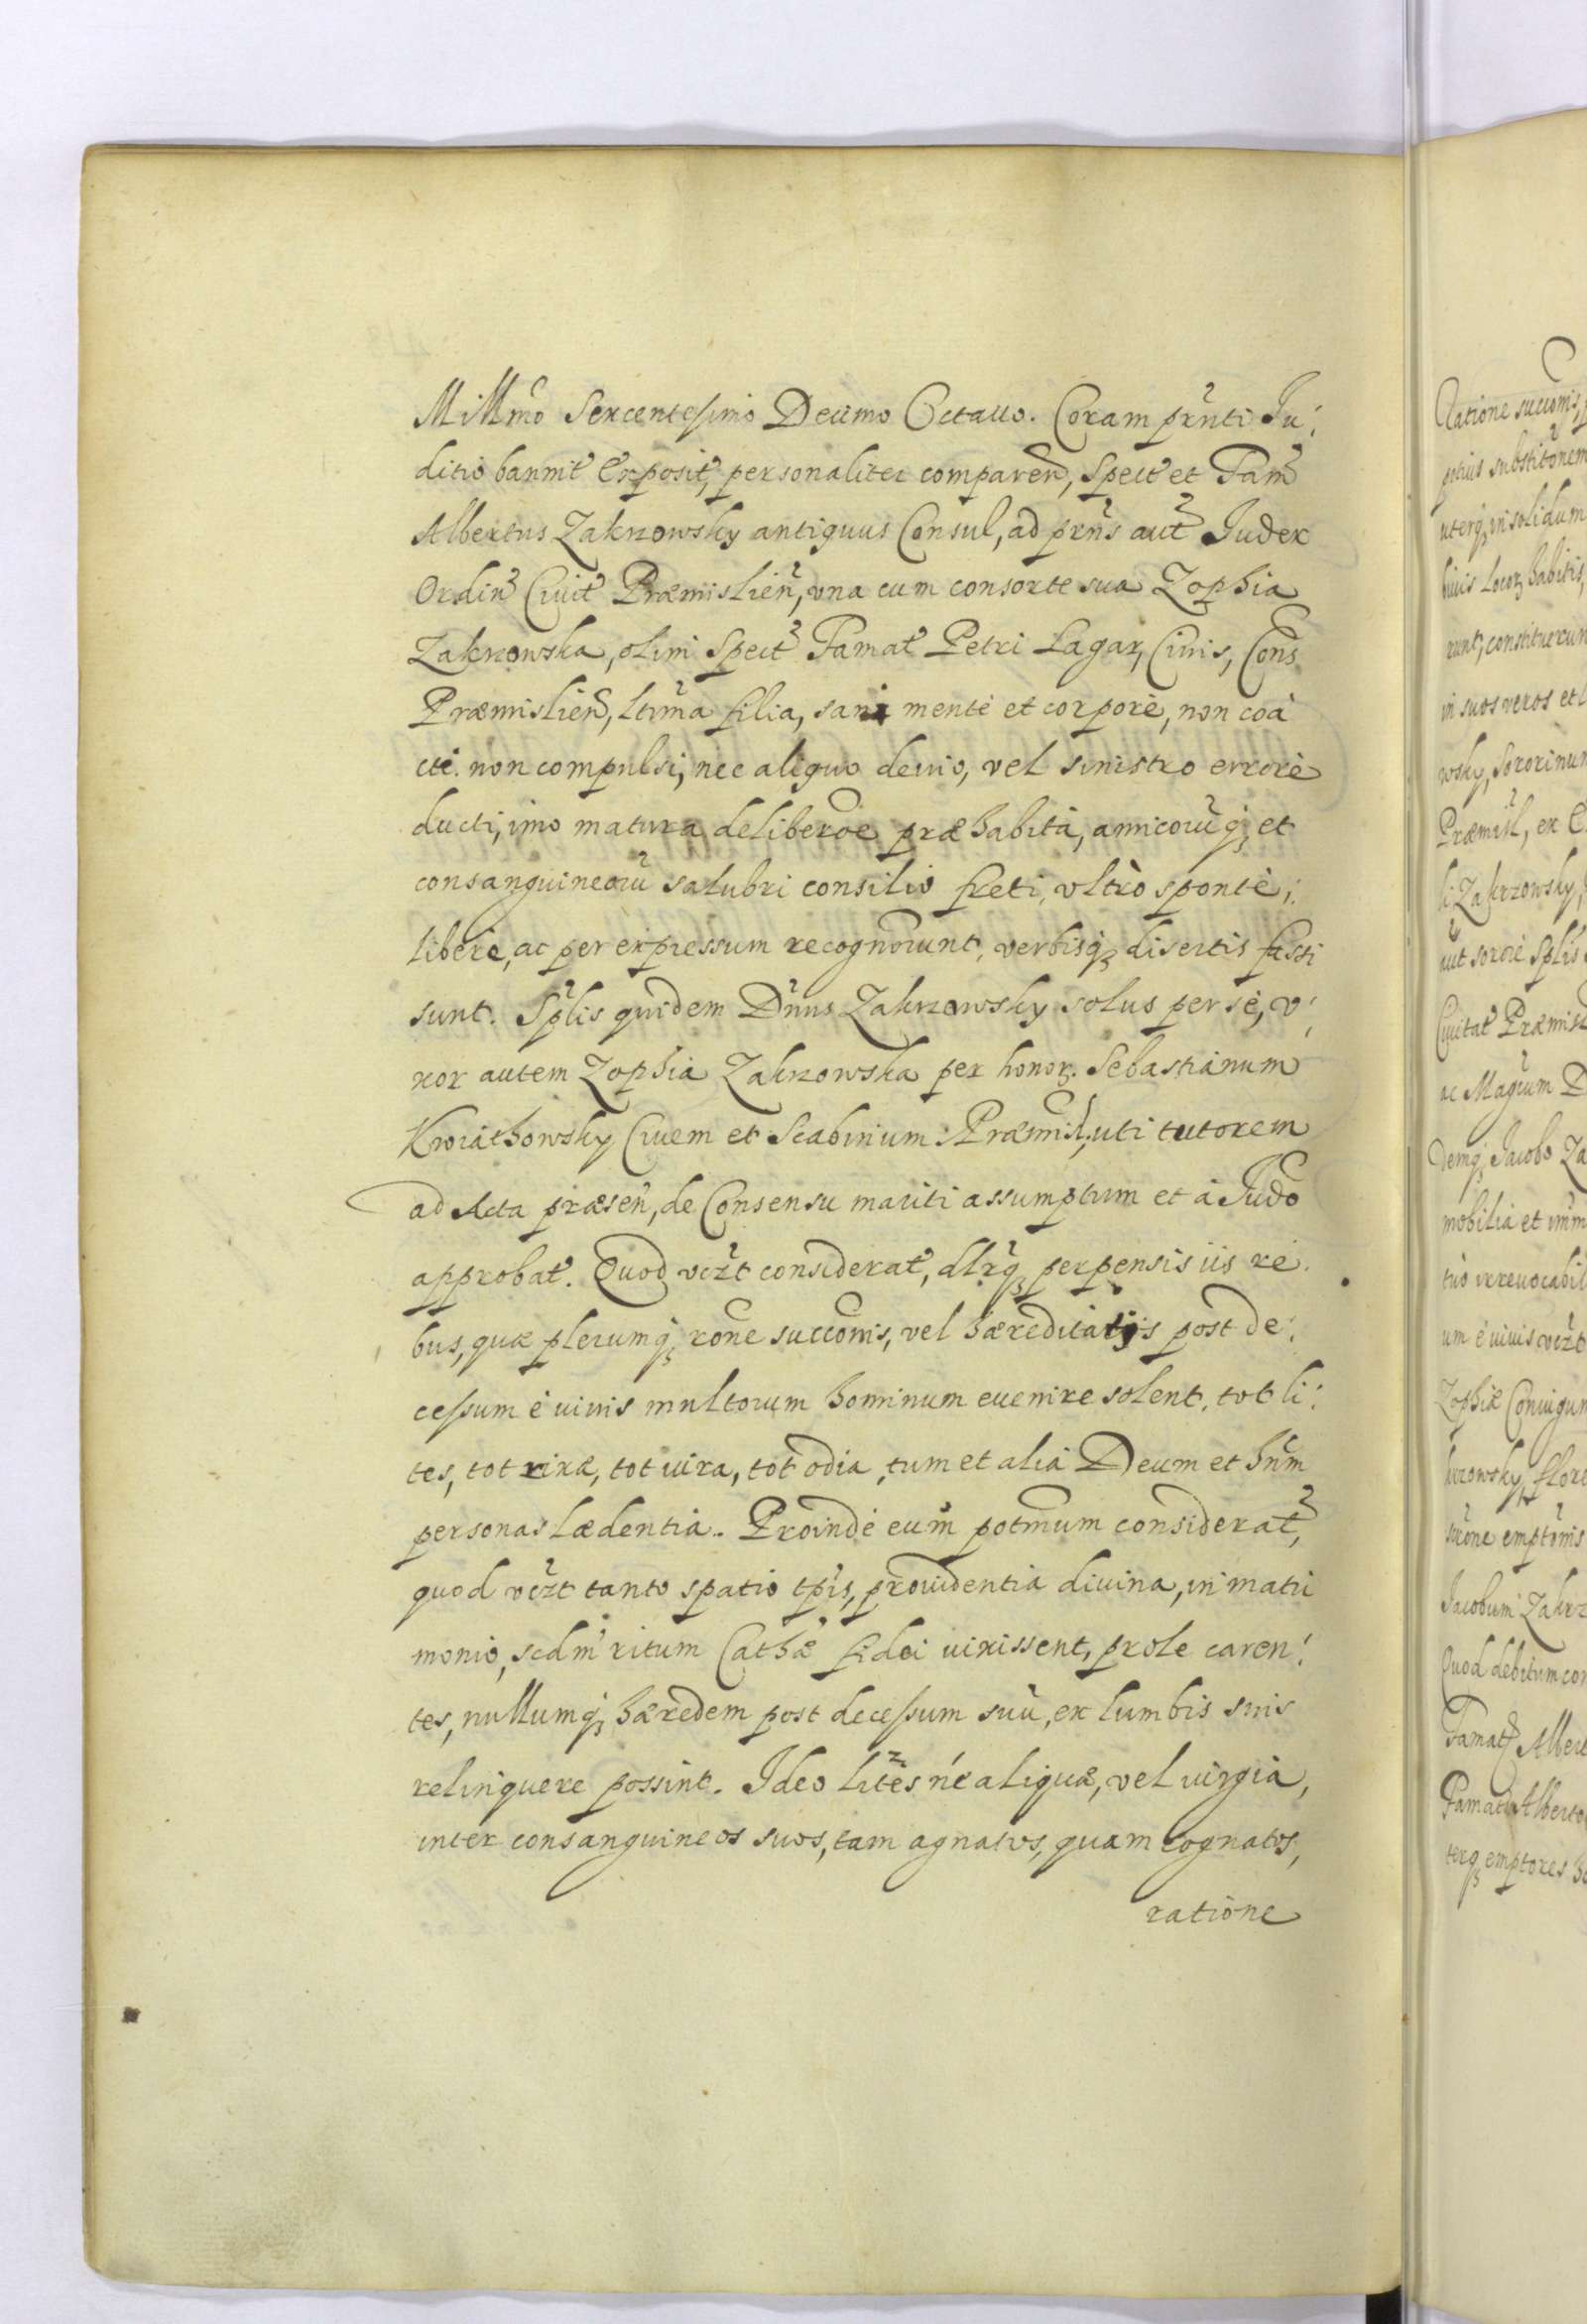 Millm̃o Sexcentesimo Decimo Octauo. Coram pr̃nti Iu:
ditio bannit̃ exposit̃, personaliter comparen̄, Spect̃ et Fam̃
Albertus Zakrzowsky antiquus Consul, ad pr̃ns aut̃ Iudex
Ordin̄ Ciuit̃ Præmislien̄, vna cum consorte sua Zophia
Zakrzowska, olim Spect̃ Famat̃ Petri Lagar, Ciuis, Cons
Præmislien̄, ltim̃a filia, sani mente et corpore, non coa
cti. non compulsi, nec aliquo deuio, vel sinistro errore
ducti, imo matura deliberõe præhabita, amicorũq̃ et
consanguineorũ salubri consilio freti, vltrò spontè,:
liberè, ac per expressum recognõrunt, verbisq̃ disertis fassi
sunt. Sp̃lis quidem Dñus Zakrzowsky solus per se, v:
xor autem Zophia Zakrzowska per honor. Sebastianum
Kwiatkowsky Ciuem et Scabinium Præmisl, uti tutorem
ad Acta præsen̄, de Consensu mariti assumptum et à Iudõ
approbat̃. Quod vcz̃t considerat̃, dlrq̃ perpensis iis re.
bus, quæ plerumq̃ rõne succõnis, vel hæreditatis post de:
cessum è viuis multorum hominum euenire solent, tot li:
tes, tot rixæ, tot iurа, tot odia, tum et alia Deum et hñm
personas lædentia. Proindè eum̃ potm̃um considerat̃,
quod vcz̃t tanto spatio tp̃is, prouidentia diuina, in matri
monio, scdm̃ ritum Cathæ fidei uixissent, prole caren:
tes, nullumq̃ hæredem post decessum suũ, ex lumbis suis
relinquere possint. Ideo lites nè aliquæ, vel iurgia,
inter consanguineos suos, tam agnatos, quam cognatos,
ratione
Ratione succõnis,
substitõnem
uterq̃ in solidum
habitis,
runt, constituerun
in suos veros et l
wsky, Sororinum
Præmisl, ex
Zakrzowsky,
aut sorore Splis
Ciuitat̃ Præmisl
ac Magrum D
demq̃ Iacobo Za
mobilia et imm
tuo irreuocabil
um è viuis vcz̃t
Zophiæ Coniugum
krzowsky,
emptõnis
Iacobum Zakrz
Quod debitum con
Famat̃ Albert
Famat̃ Alberto
terq̃ emptores